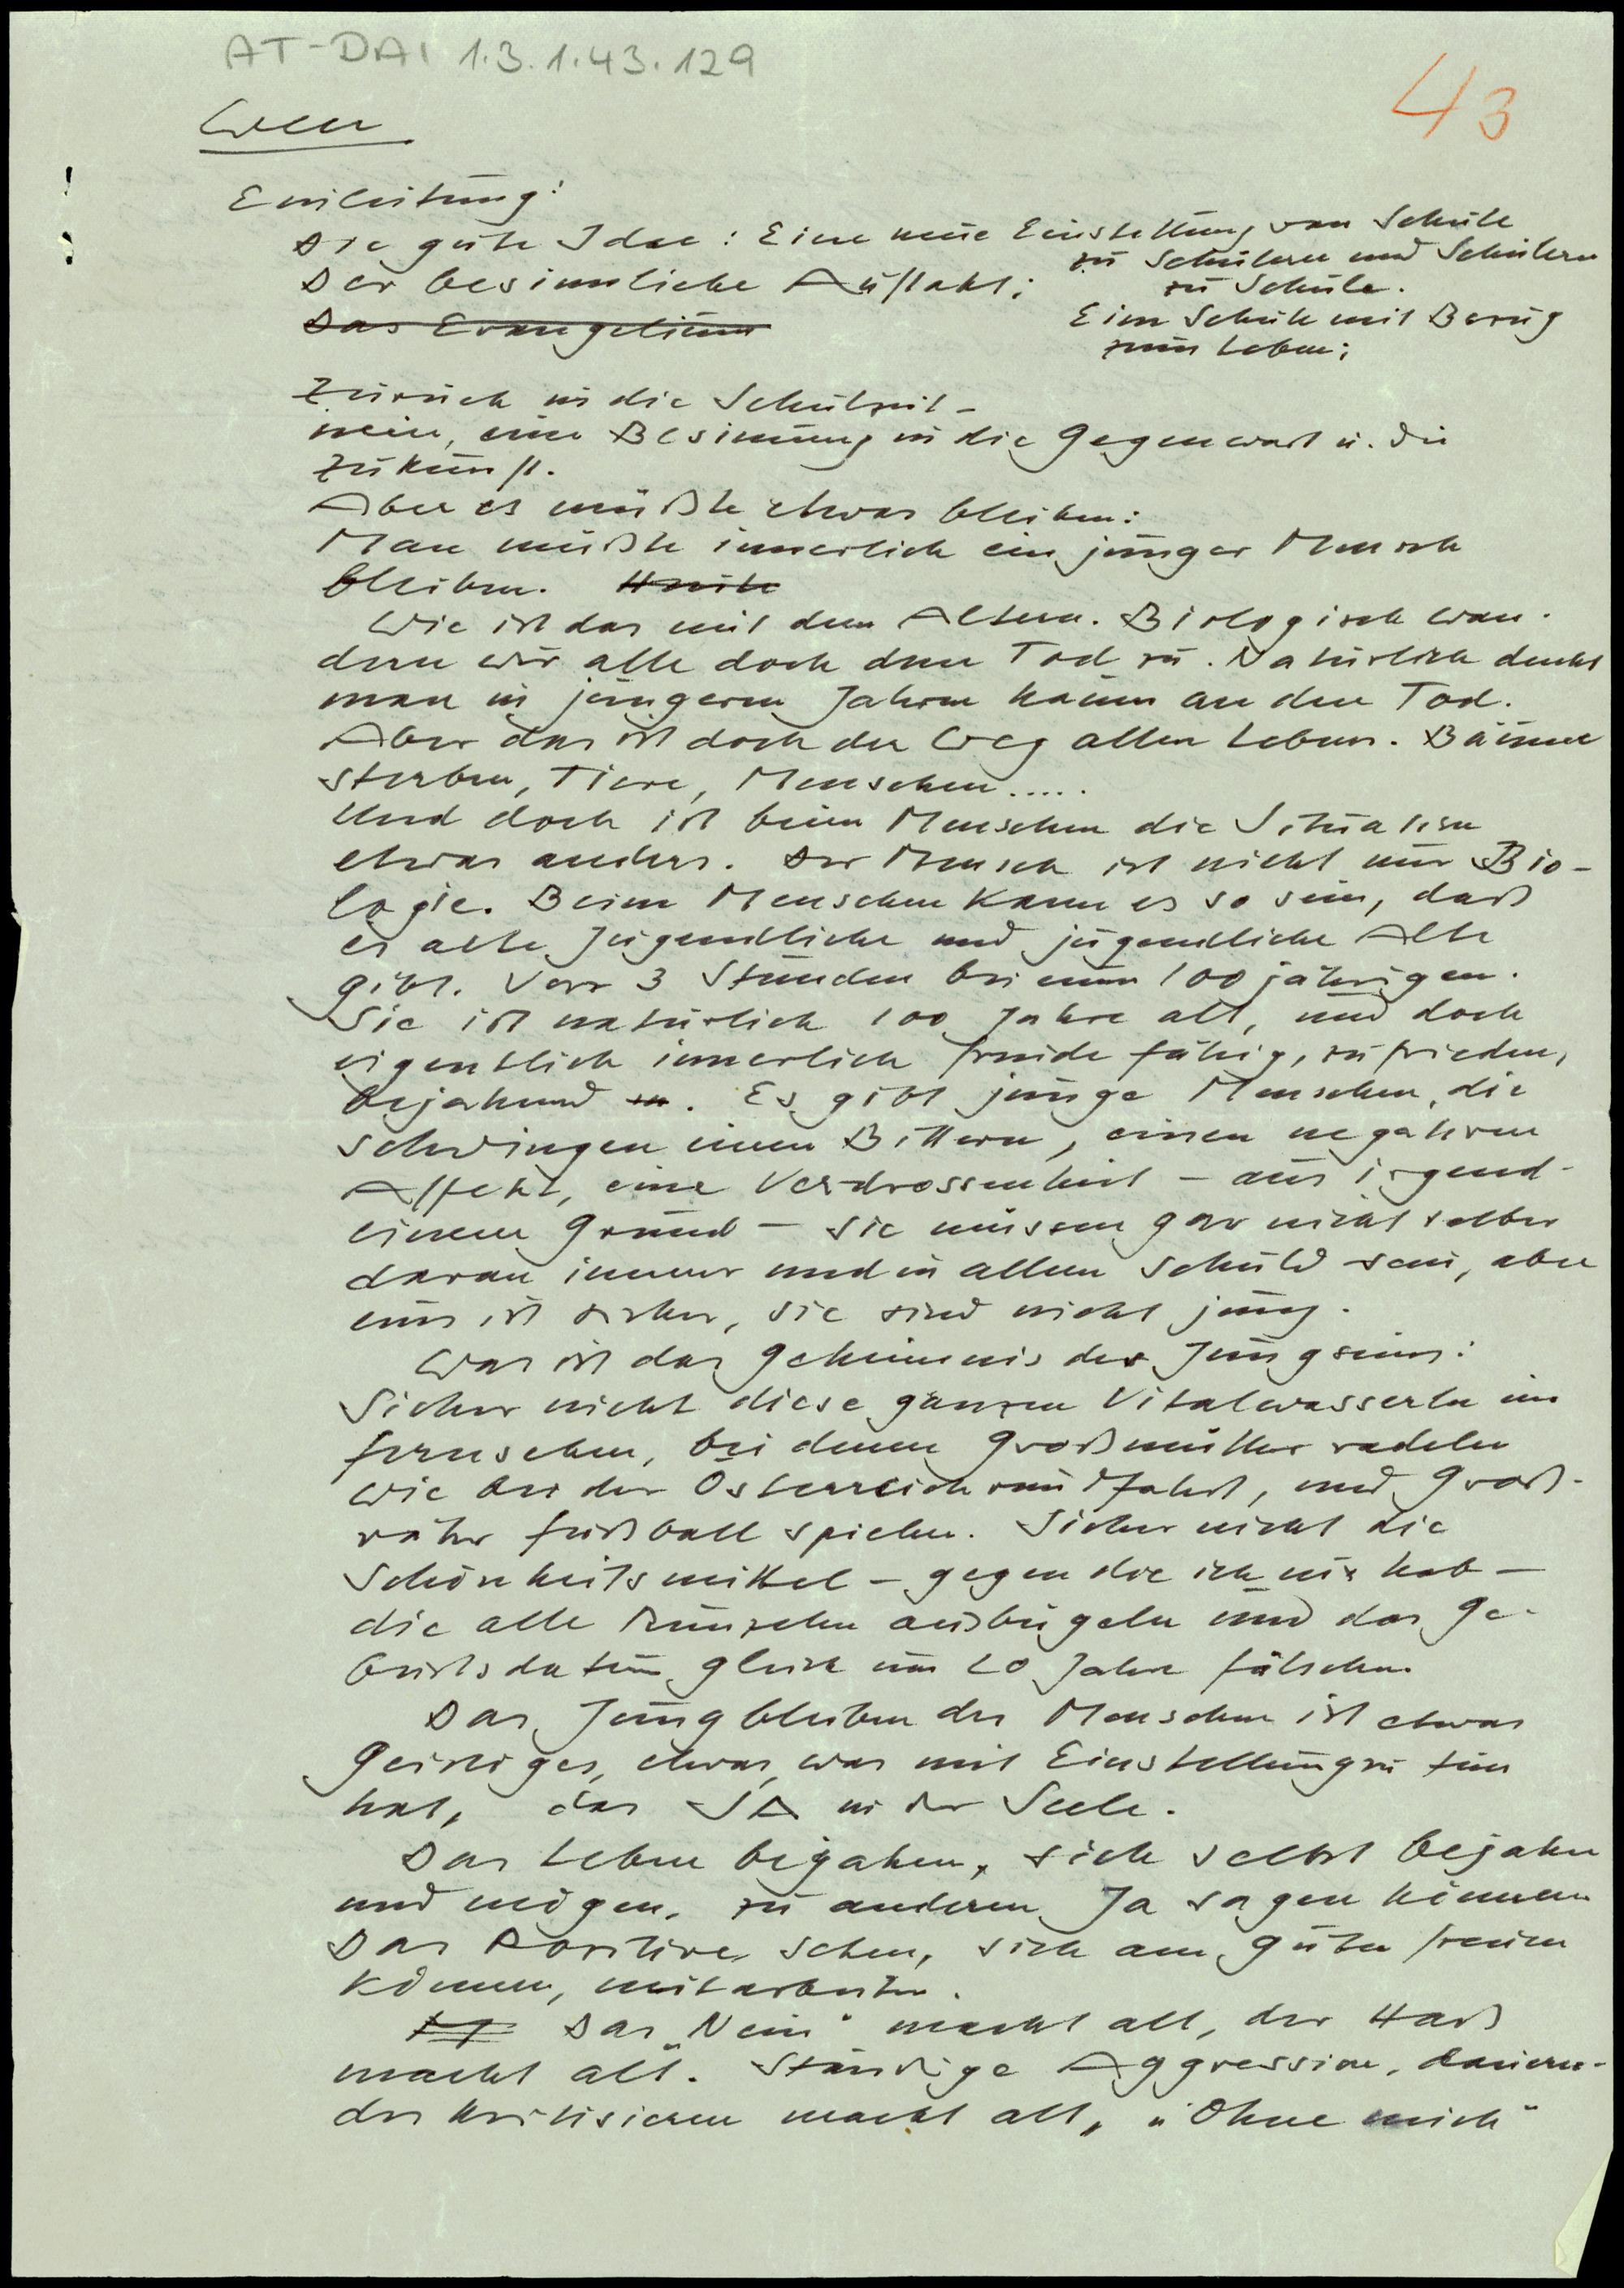 AT-DAI 1.3.1.43.129
43
Einleitung:
Die gute Idee: Eine neue Einstellung von Schule
zu Schülern und Schülern
Der besinnliche Auftakt:
zu Schule.
Das Evangelium
Eine Schule mit Bezug
zum Leben:
Zurück in die Schulzeit -
nein, eine Besinnung in die Gegenwart u. die
Zukunft.
Aber es müßte etwas bleiben:
Man müßte innerlich ein junger Mensch
bleiben. Heute
Wie ist das mit dem Altern. Biologisch wan-
dern wir alle doch dem Tod zu. Natürlich denkt
man in jüngeren Jahren kaum an den Tod.
Aber das ist doch der Weg allen Lebens. Bäume
sterben, Tiere, Menschen.....
Und doch ist beim Menschen die Situation
etwas anders. Der Mensch ist nicht nur Bio-
logie. Beim Menschen kann es so sein, daß
es alte Jugendliche und jugendliche Alte
gibt. Vor 3 Stunden bei einer 100 jährigen.
Sie ist natürlich 100 Jahre alt, und doch
eigentlich innerlich freude fähig, zufrieden,
bejahend. Es gibt junge Menschen, die
schwingen einen Bittern, einen negativen
Affekt, eine Verdrossenheit - aus irgend-
einem Grund - sie müssen gar nicht selber
daran immer und in allem schuld sein, aber
eins ist sicher, sie sind nicht jung.
Was ist das Geheimnis des Jungseins:
Sicher nicht diese ganzen Vitalwasserln im
Fernsehen, bei denen Großmütter radeln
wie bei der Österreichrundfahrt, und Groß-
väter Fußball spielen. Sicher nicht die
Schönheitsmittel - gegen die ich nix hab -
die alle Runzeln ausbügeln und das Ge-
burtsdatum gleich um 20 Jahre fälschen.
Das Jungbleiben des Menschen ist etwas
Geistiges, etwas, was mit Einstellung zu tun
hat, das JA in der Seele.
Das Leben bejahen, sich selbst bejahen
und mögen, zu anderen Ja sagen können
Das Positive sehen, sich am Guten freuen
können, mitarbeiten.
Das "Nein" macht alt, der Haß
macht alt. Ständige Aggression, dauern-
des kritisieren macht alt, "Ohne mich"